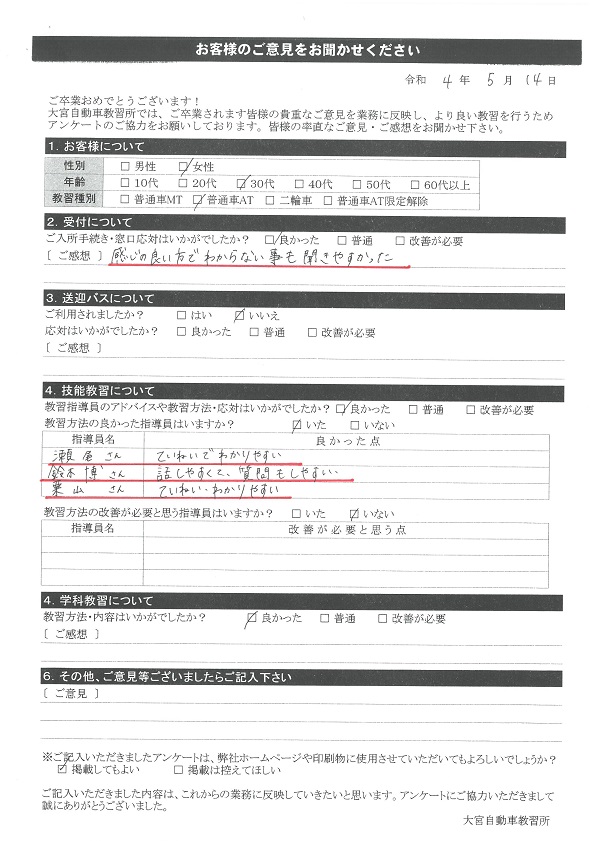 お客様のご意見をお聞かせください
令和 4 年 5 月 14 日
ご卒業おめでとうございます！
大宮自動車教習所では、ご卒業されます皆様の貴重なご意見を業務に反映し、より良い教習を行うため
アンケートのご協力をお願いしております。皆様の率直なご意見・ご感想をお聞かせ下さい。
1. お客様について
性別 □ 男性 ☑ 女性
年齢 □ 10代 □ 20代 ☑ 30代 □ 40代 □ 50代 □ 60代以上
教習種別 □ 普通車MT ☑ 普通車AT □ 二輪車 □ 普通車AT限定解除
2. 受付について
ご入所手続き・窓口応対はいかがでしたか？ ☑ 良かった □ 普通 □ 改善が必要
[ ご感想 ] 感じの良い方でわからない事も聞きやすかった
3. 送迎バスについて
ご利用されましたか？ □ はい ☑ いいえ
応対はいかがでしたか？ □ 良かった □ 普通 □ 改善が必要
[ ご感想 ]
4. 技能教習について
教習指導員のアドバイスや教習方法・応対はいかがでしたか？ ☑ 良かった □ 普通 □ 改善が必要
教習方法の良かった指導員はいますか？ ☑ いた □ いない
指導員名 良かった点
瀬尾さん ていねいでわかりやすい
鈴木博さん 話しやすくて、質問もしやすい
葉山さん ていねい・わかりやすい
教習方法の改善が必要と思う指導員はいますか？ □ いた ☑ いない
指導員名 改善が必要と思う点
4. 学科教習について
教習方法・内容はいかがでしたか？ ☑ 良かった □ 普通 □ 改善が必要
[ ご感想 ]
6. その他、ご意見等ございましたらご記入下さい
[ ご意見 ]
※ご記入いただきましたアンケートは、弊社ホームページや印刷物に使用させていただいてもよろしいでしょうか？
☑ 掲載してもよい □ 掲載は控えてほしい
ご記入いただきました内容は、これからの業務に反映していきたいと思います。アンケートにご協力いただきまして
誠にありがとうございました。
大宮自動車教習所